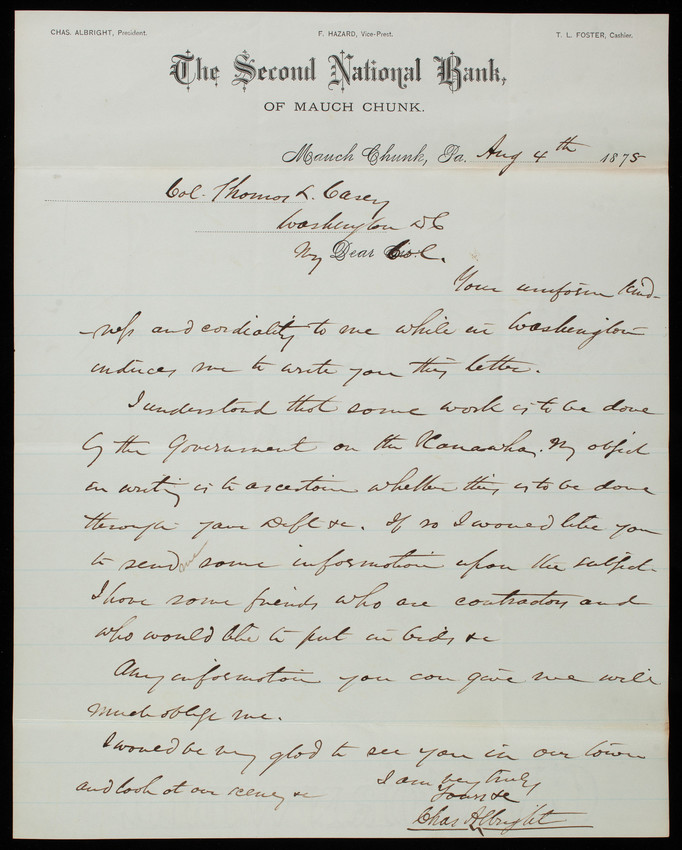 CHAS. ALBRIGHT, President. F. HAZARD, Vice-Prest. T. L. FOSTER, Cashier.
The Second National Bank,
OF MAUCH CHUNK.
Mauch Chunk, Pa. Aug 4th 1875
Col. Thomas L. Casey
Washington DC
My Dear Col.
Your uniform kind-
-ness and cordiality to me while in Washington
induces me to write you this letter.
I understand that some work is to be done
by the Government on the Kanawha. My object
in writing is to ascertain whether this is to be done
through your Dept &c. If so I would like you
to send me some information upon the subject.
I have some friends who are contractors and
who would like to put in bids &c
Any information you can give me will
much oblige me.
I would be very glad to see you in our town
and look at our scenery &c
I am very truly
Yours &c
Chas Albright